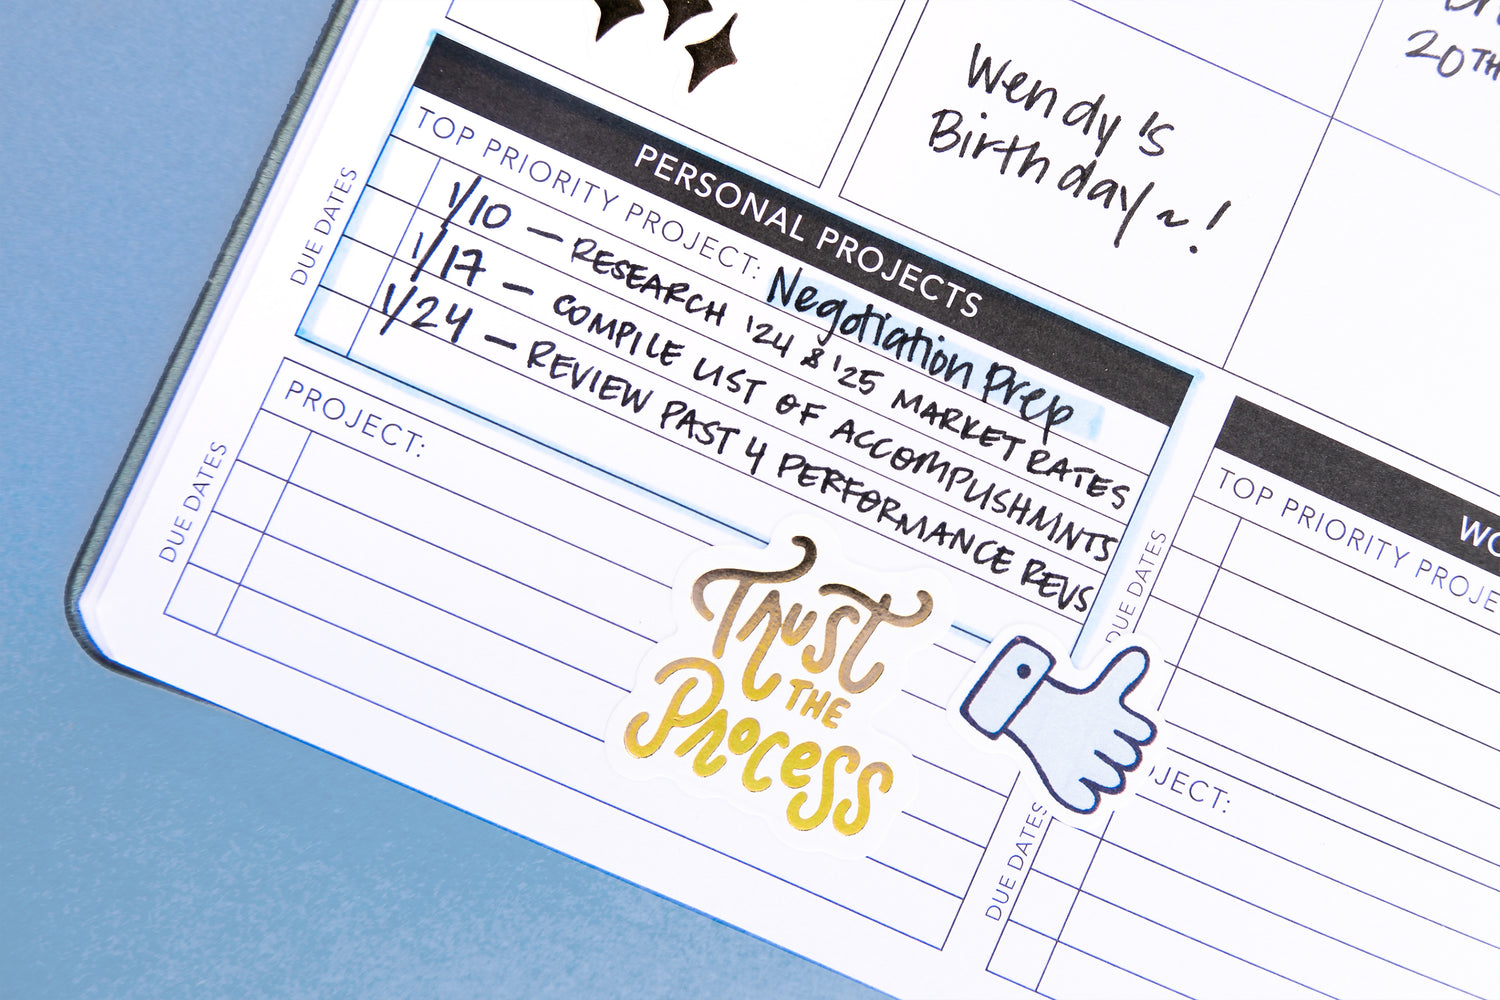 20TH
Wendy's
Birthday ~!
PERSONAL PROJECTS
TOP PRIORITY PROJECT: Negotiation Prep
DUE DATES
1/10 – RESEARCH '24 & '25 MARKET RATES
1/17 – COMPILE LIST OF ACCOMPLISHMNTS
1/24 – REVIEW PAST 4 PERFORMANCE REVS
PROJECT:
DUE DATES
Trust
THE
Process
WO
TOP PRIORITY PROJE
DUE DATES
JECT:
DUE DATES